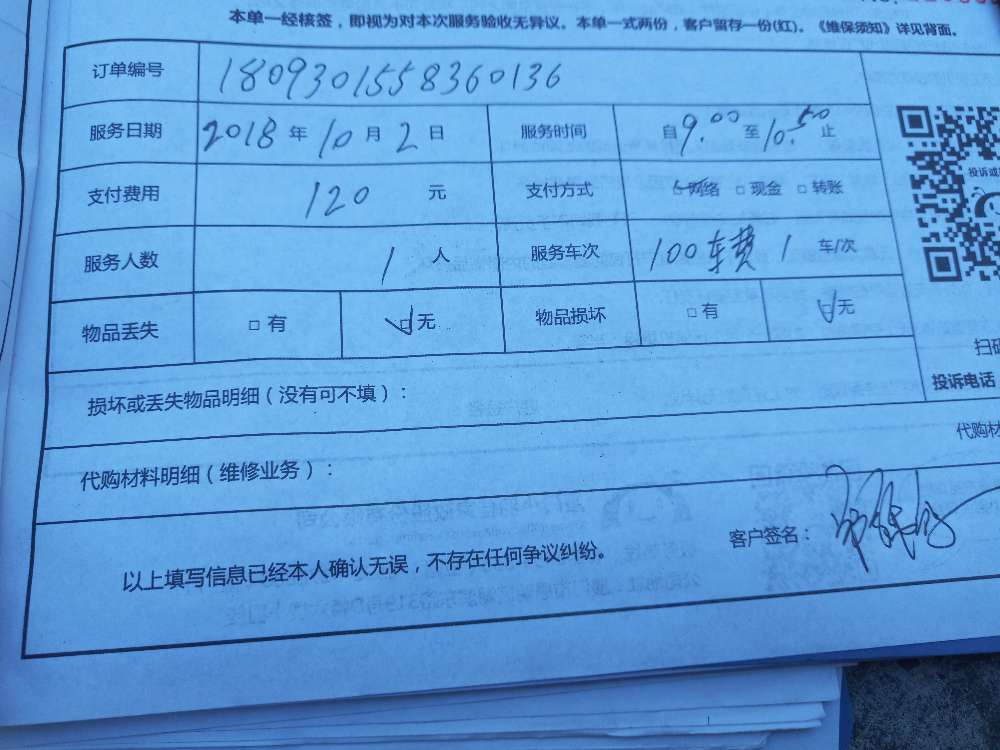 本单一经核签，即视为对本次服务验收无异议。本单一式两份，客户留存一份(红)。《维保须知》详见背面。
订单编号 1809301558360136
服务日期 2018 年 10 月 2 日 服务时间 自 9.00 至 10.50 止
支付费用 120 元 支付方式 □网络 □现金 □转账
服务人数 1 人 服务车次 100车费 1 车/次
物品丢失 □ 有 □ 无 物品损坏 □ 有 □ 无
投诉或
扫码
投诉电话
损坏或丢失物品明细（没有可不填）：
代购材
代购材料明细（维修业务）：
客户签名：
以上填写信息已经本人确认无误，不存在任何争议纠纷。